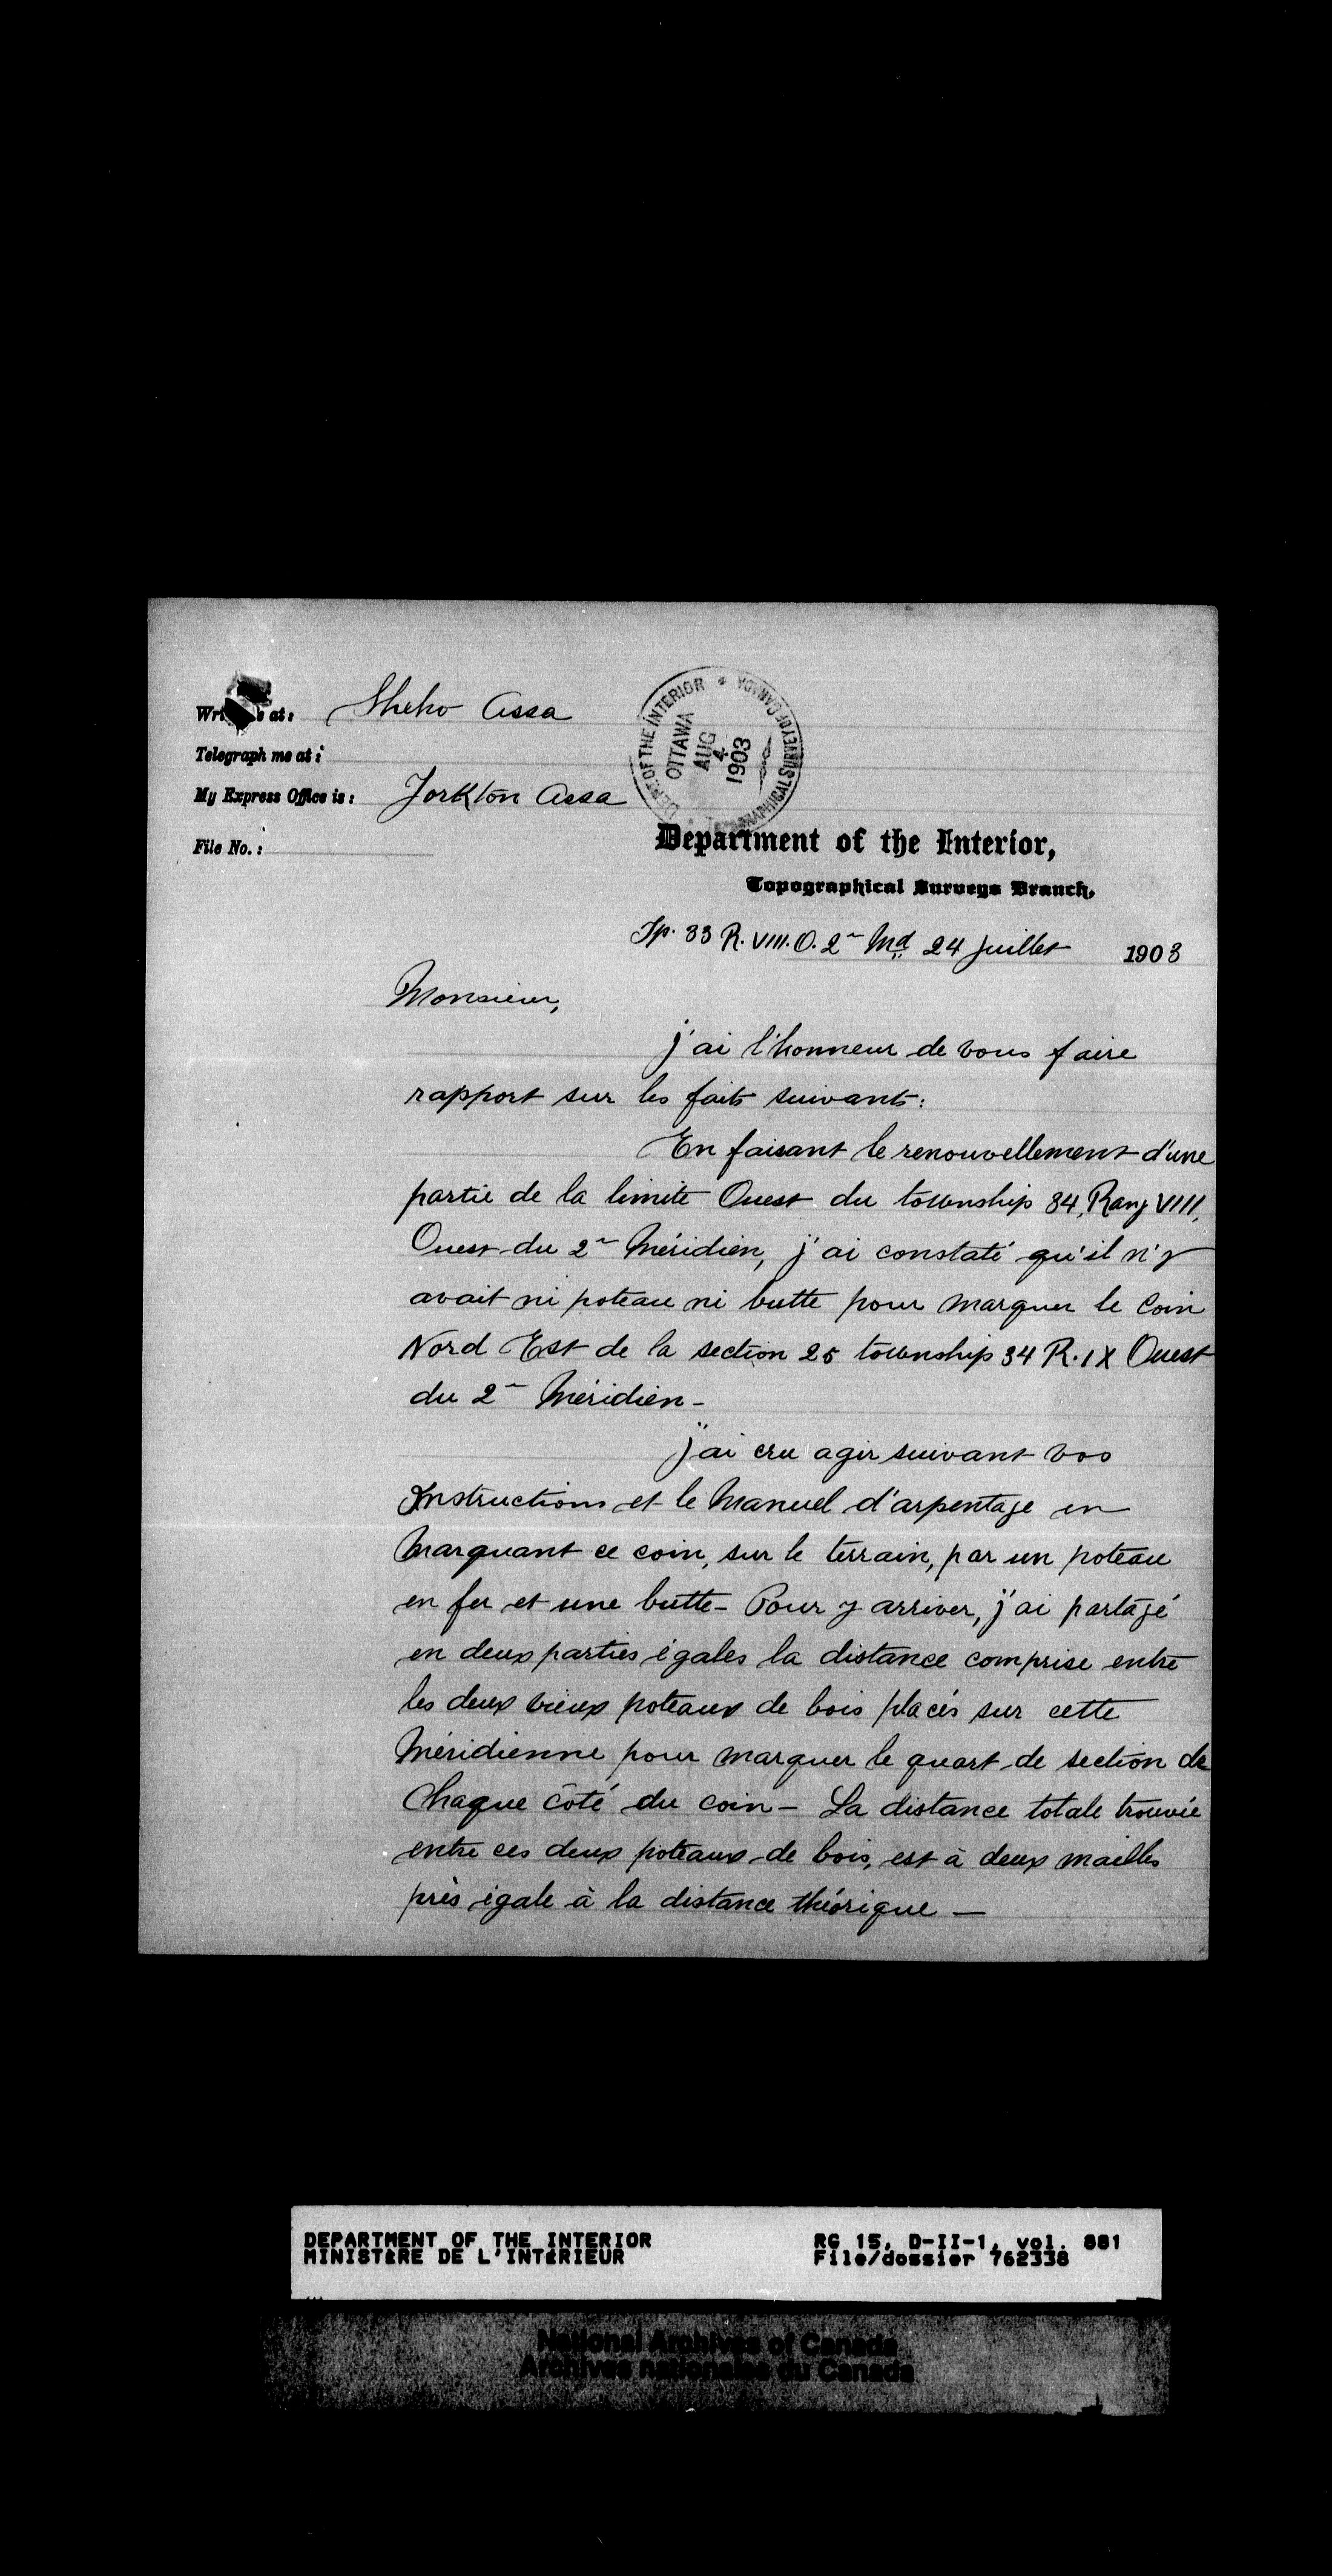 Write me at: Sheho Assa
Telegraph me at:
My Express Office is: Yorkton Assa
File No.:
DEPT OF THE INTERIOR * TOPOGRAPHICAL SURVEY OF CANADA
OTTAWA
AUG
4
1903
Department of the Interior,
Topographical Surveys Branch,
Tp. 33 R. VIII. O. 2e Md 24 Juillet 1903
Monsieur,
j'ai l'honneur de vous faire
rapport sur les faits suivants:
En faisant le renouvellement d'une
partie de la limite Ouest du township 34, Rang VIII,
Ouest du 2e Méridien, j'ai constaté qu'il n'y
avait ni poteau ni butte pour marquer le coin
Nord Est de la section 25 township 34 R. IX Ouest
du 2e Méridien -
j'ai cru agir suivant vos
Instructions et le Manuel d'arpentage en
Marquant ce coin, sur le terrain, par un poteau
en fer et une butte - Pour y arriver, j'ai partagé
en deux parties égales la distance comprise entre
les deux vieux poteaux de bois placés sur cette
Méridienne pour marquer le quart de section de
Chaque côté du coin - La distance totale trouvée
entre ces deux poteaux de bois, est à deux mailles
près égale à la distance théorique -
DEPARTMENT OF THE INTERIOR RG 15, D-II-1, vol. 881
MINISTÈRE DE L'INTÉRIEUR File/dossier 762338
National Archives of Canada
Archives nationales du Canada